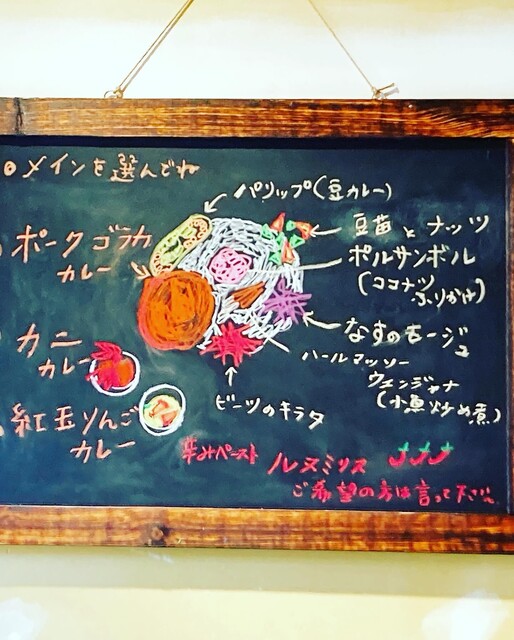 メインを選んでね
パリップ(豆カレー)
豆苗とナッツ
ポークゴラカ
カレー
ポルサンボル
(ココナツ
ふりかけ)
カニ
カレー
なすのモージュ
ハールマッソー
ウェンジャナ
(小魚炒め煮)
ビーツのキラタ
紅玉りんご
カレー
辛みペースト ルヌミリス
ご希望の方は言って下さい。